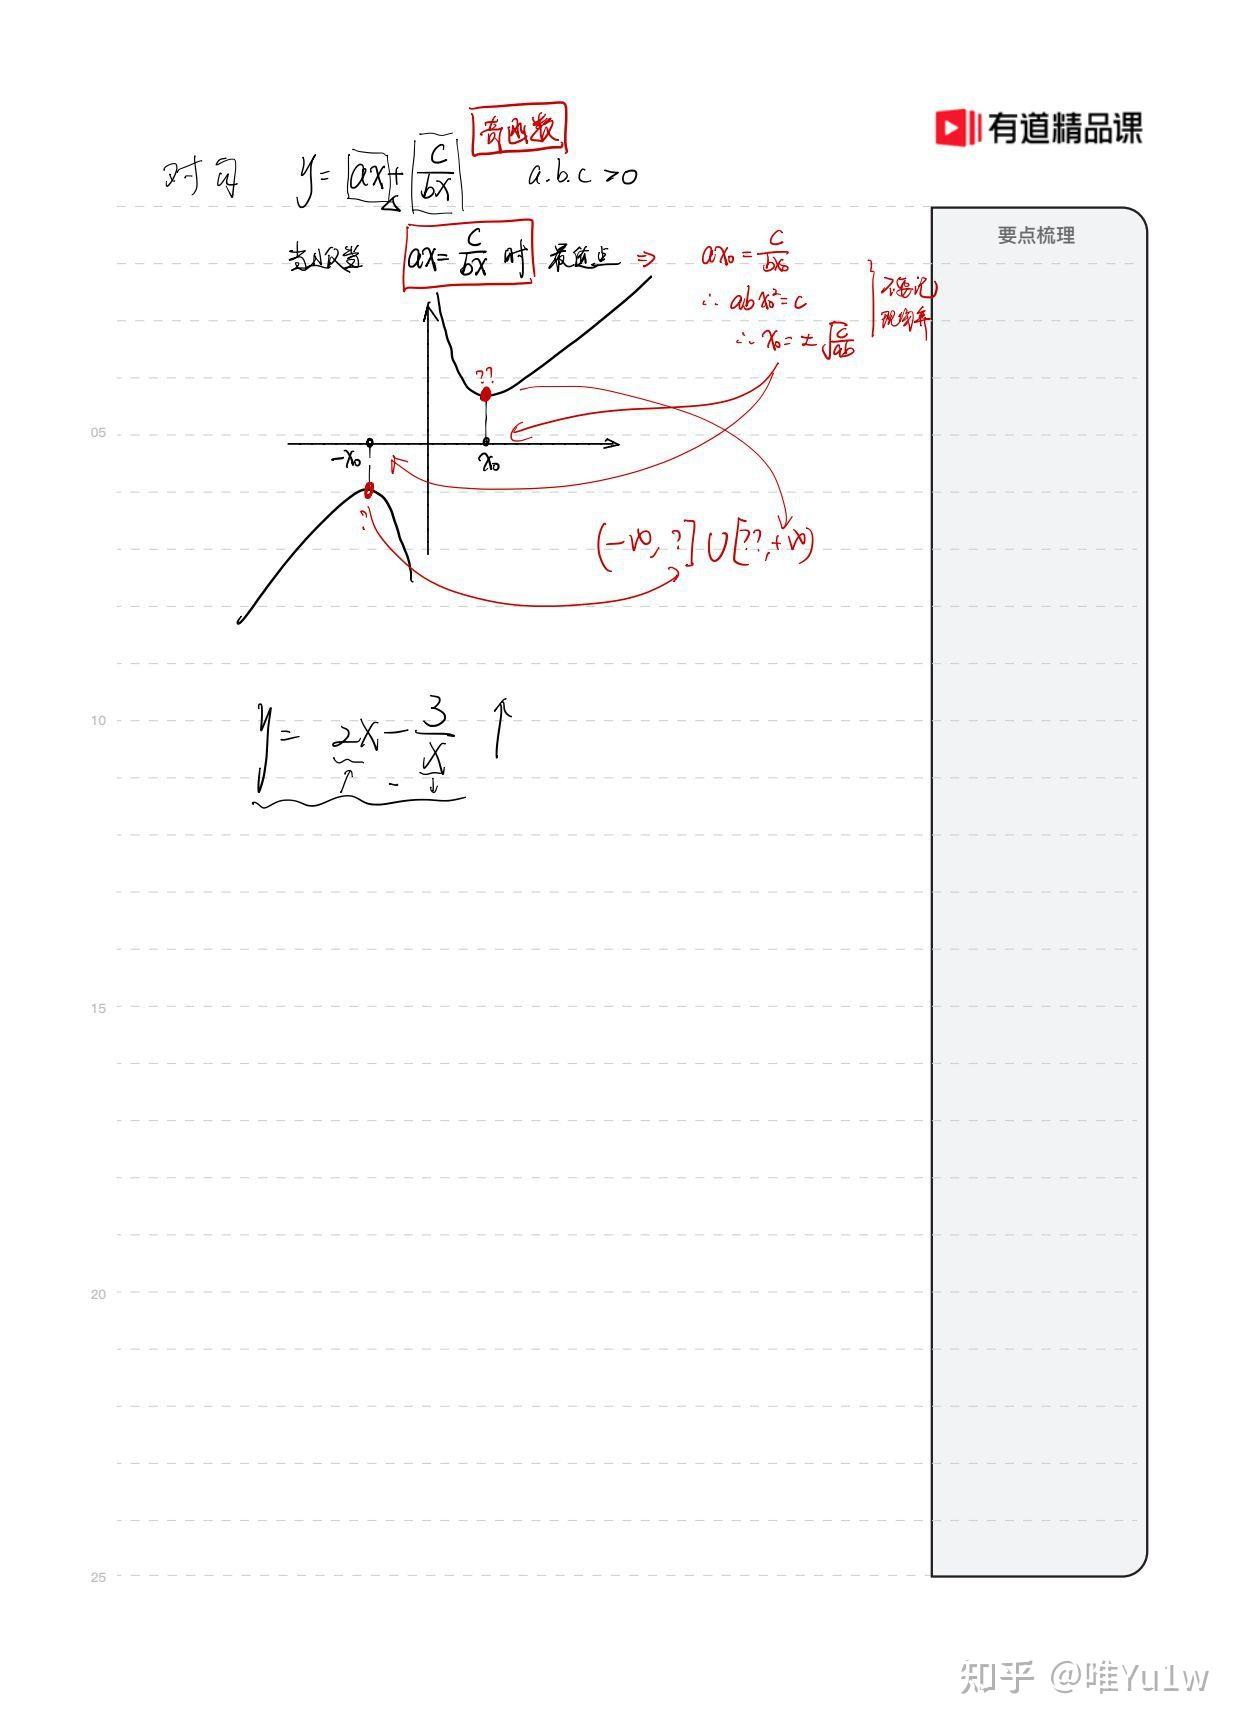 有道精品课
奇函数
对勾 y = ax + c/bx a.b.c >0
要点梳理
当且仅当 ax = c/bx 时 最值点 ⇒ ax₀ = c/bx₀
∴ abx₀² = c
∴ x₀ = ± √(c/ab)
不要记
??
05
-x₀ x₀
??
(-∞, ?] ∪ [??, +∞)
10
y = 2x - 3/x ↑
↑ - ↓
15
20
25
知乎 @唯Yu1w